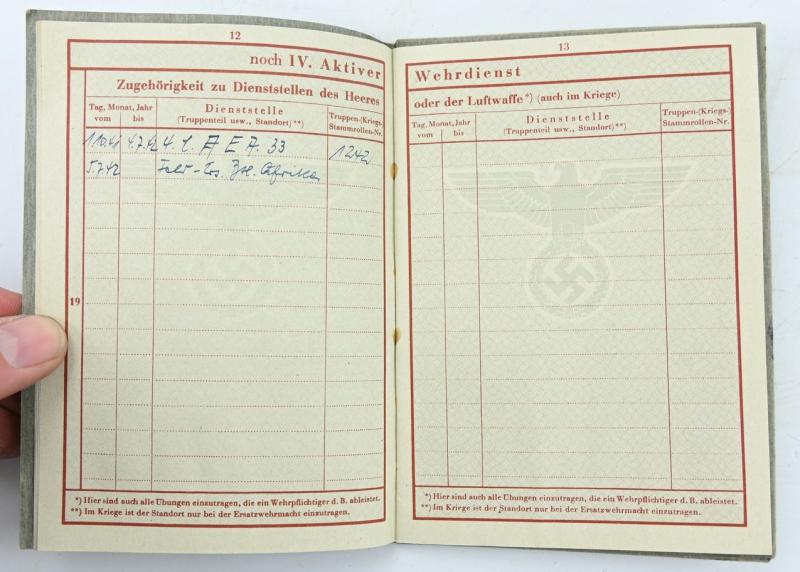 12
noch IV. Aktiver
Zugehörigkeit zu Dienststellen des Heeres
Tag, Monat, Jahr
vom bis
Dienststelle
(Truppenteil usw., Standort)**)
Truppen-(Kriegs-)
Stammrollen-Nr.
4.7.42 4. A E A. 33 1242
5.7.42
19
*) Hier sind auch alle Übungen einzutragen, die ein Wehrpflichtiger d. B. ableistet.
**) Im Kriege ist der Standort nur bei der Ersatzwehrmacht einzutragen.
13
Wehrdienst
oder der Luftwaffe*) (auch im Kriege)
Tag, Monat, Jahr
vom bis
Dienststelle
(Truppenteil usw., Standort)**)
Truppen-(Kriegs-)
Stammrollen-Nr.
*) Hier sind auch alle Übungen einzutragen, die ein Wehrpflichtiger d. B. ableistet.
**) Im Kriege ist der Standort nur bei der Ersatzwehrmacht einzutragen.